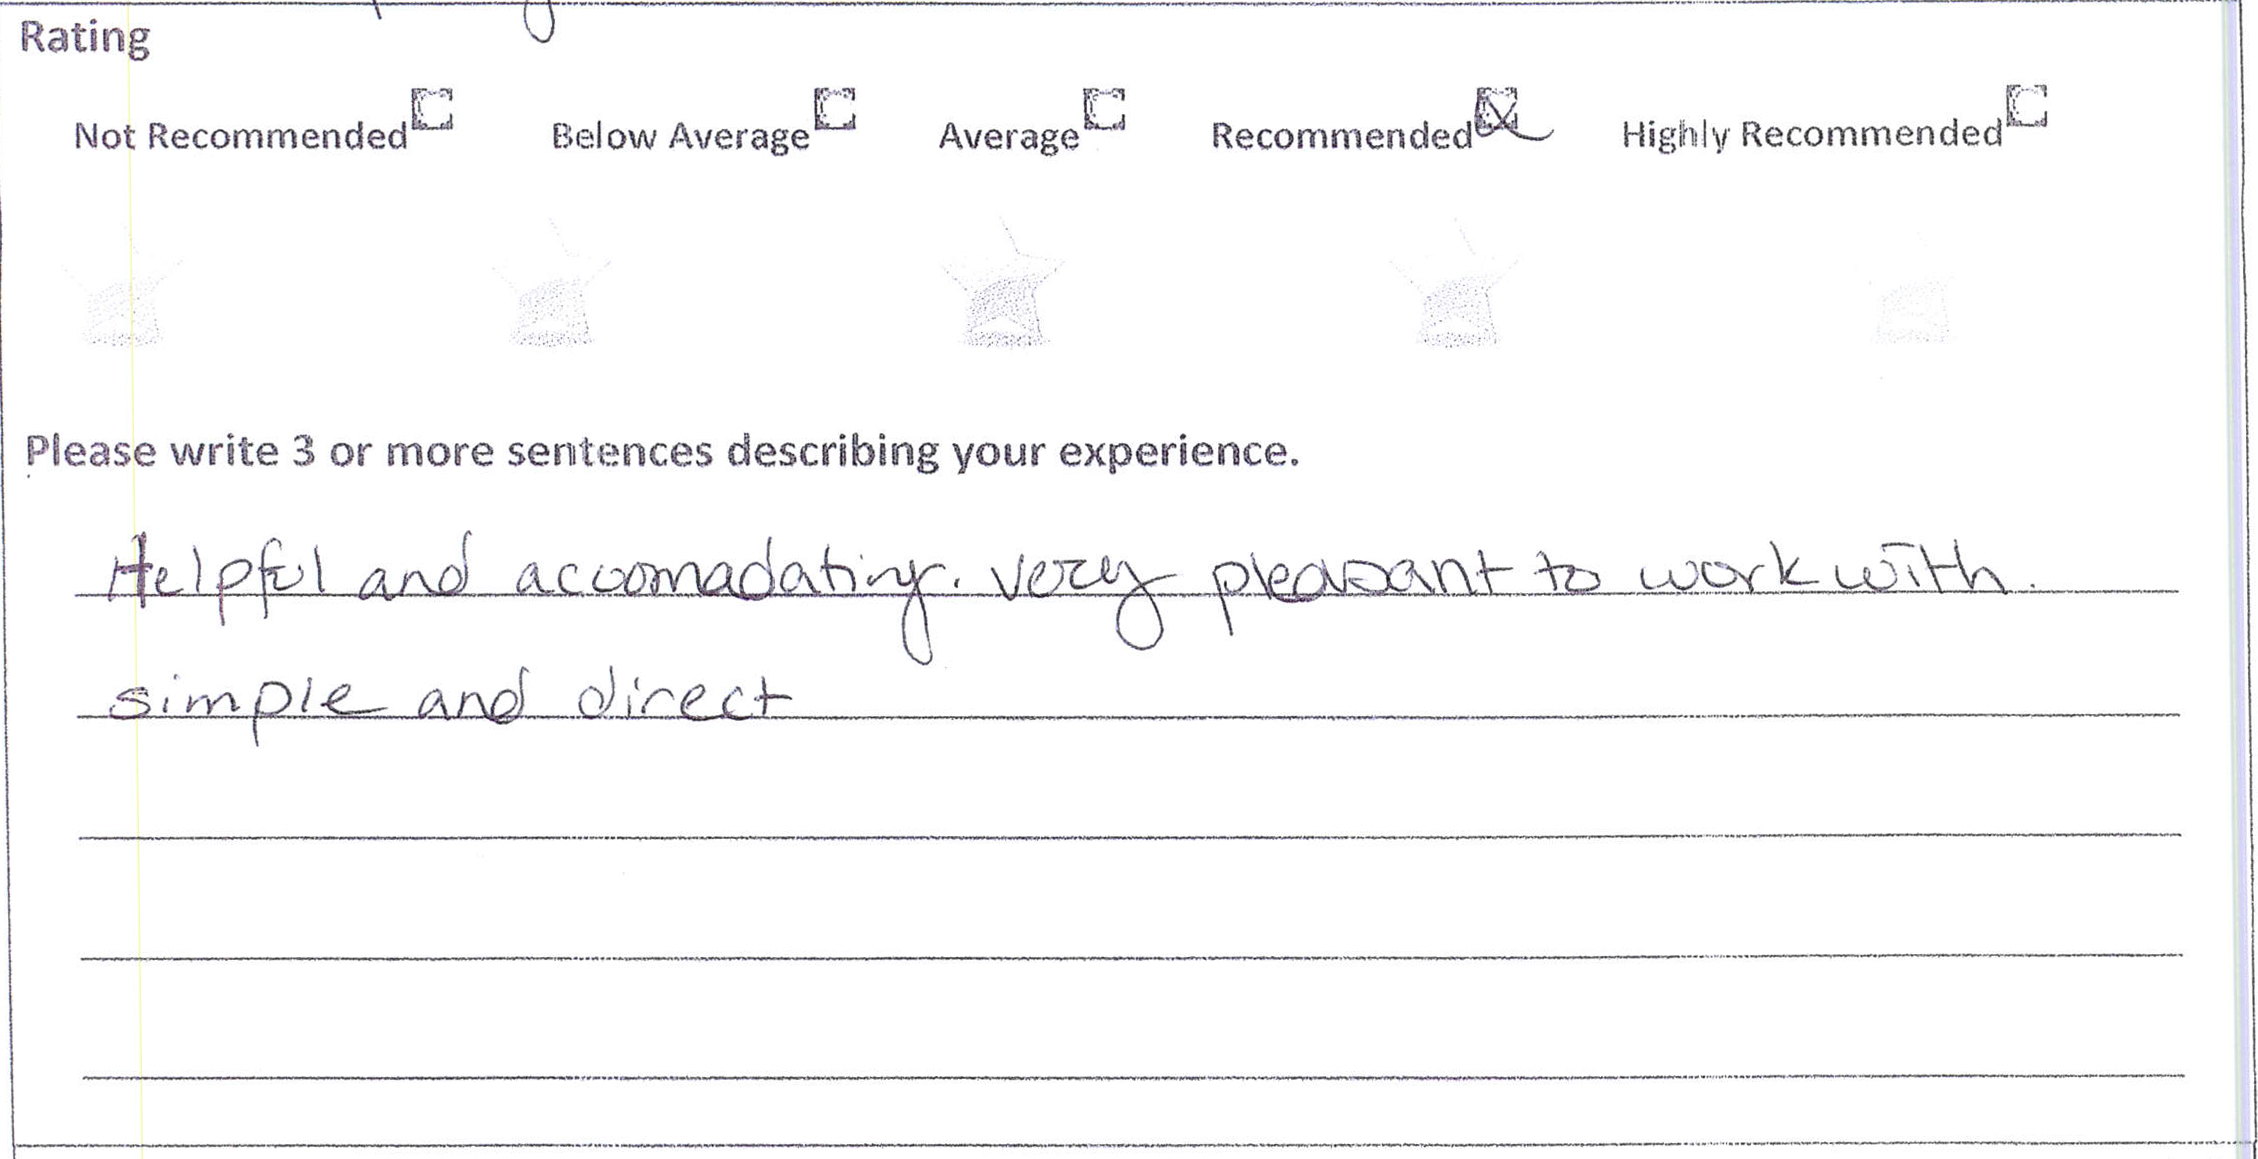 Rating
Not Recommended Below Average Average Recommended Highly Recommended
Please write 3 or more sentences describing your experience.
Helpful and accomadating. Very pleasant to work with.
simple and direct